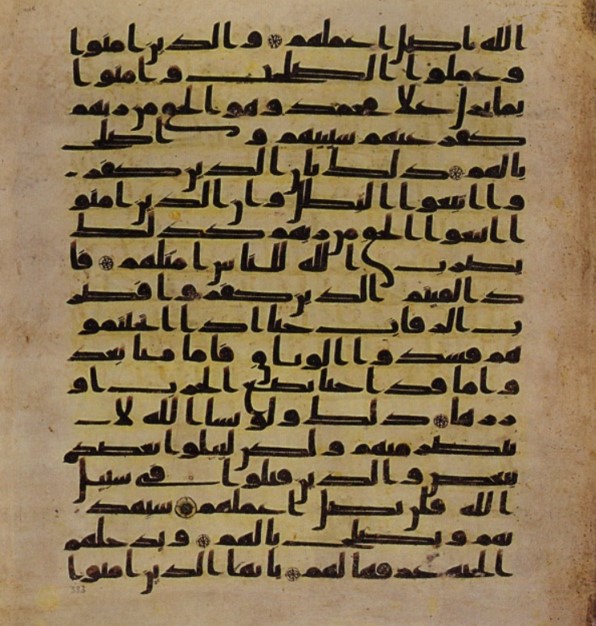 الله اضل اعملهم ۝ والذين امنوا
وعملوا الصلحت وامنوا
بما نزل علا محمد وهو الحق من ربهم
كفر عنهم سيتهم واصلح
بالهم ۝ ذلك بان الذين كفر
وا اتبعوا البطل وان الذين امنو
ا اتبعوا الحق من ربهم كذلك
يضرب الله للناس امثلهم ۝ فا
ذا لقيتم الذين كفروا فضر
ب الرقاب حتا اذا اثخنتمو
هم فشدوا الوثاق فاما منا بعد
واما فدا حتا تضع الحرب او
زرها ۝ ذلك ولو يشا الله لا
نتصر منهم ولكن ليبلوا بعضكم
ببعض والذين قتلوا في سبيل
الله فلن يضل اعملهم ۝ سيهد
يهم ويصلح بالهم ۝ ويدخلهم
الجنه عرفها لهم ۝ يايها الذين امنوا